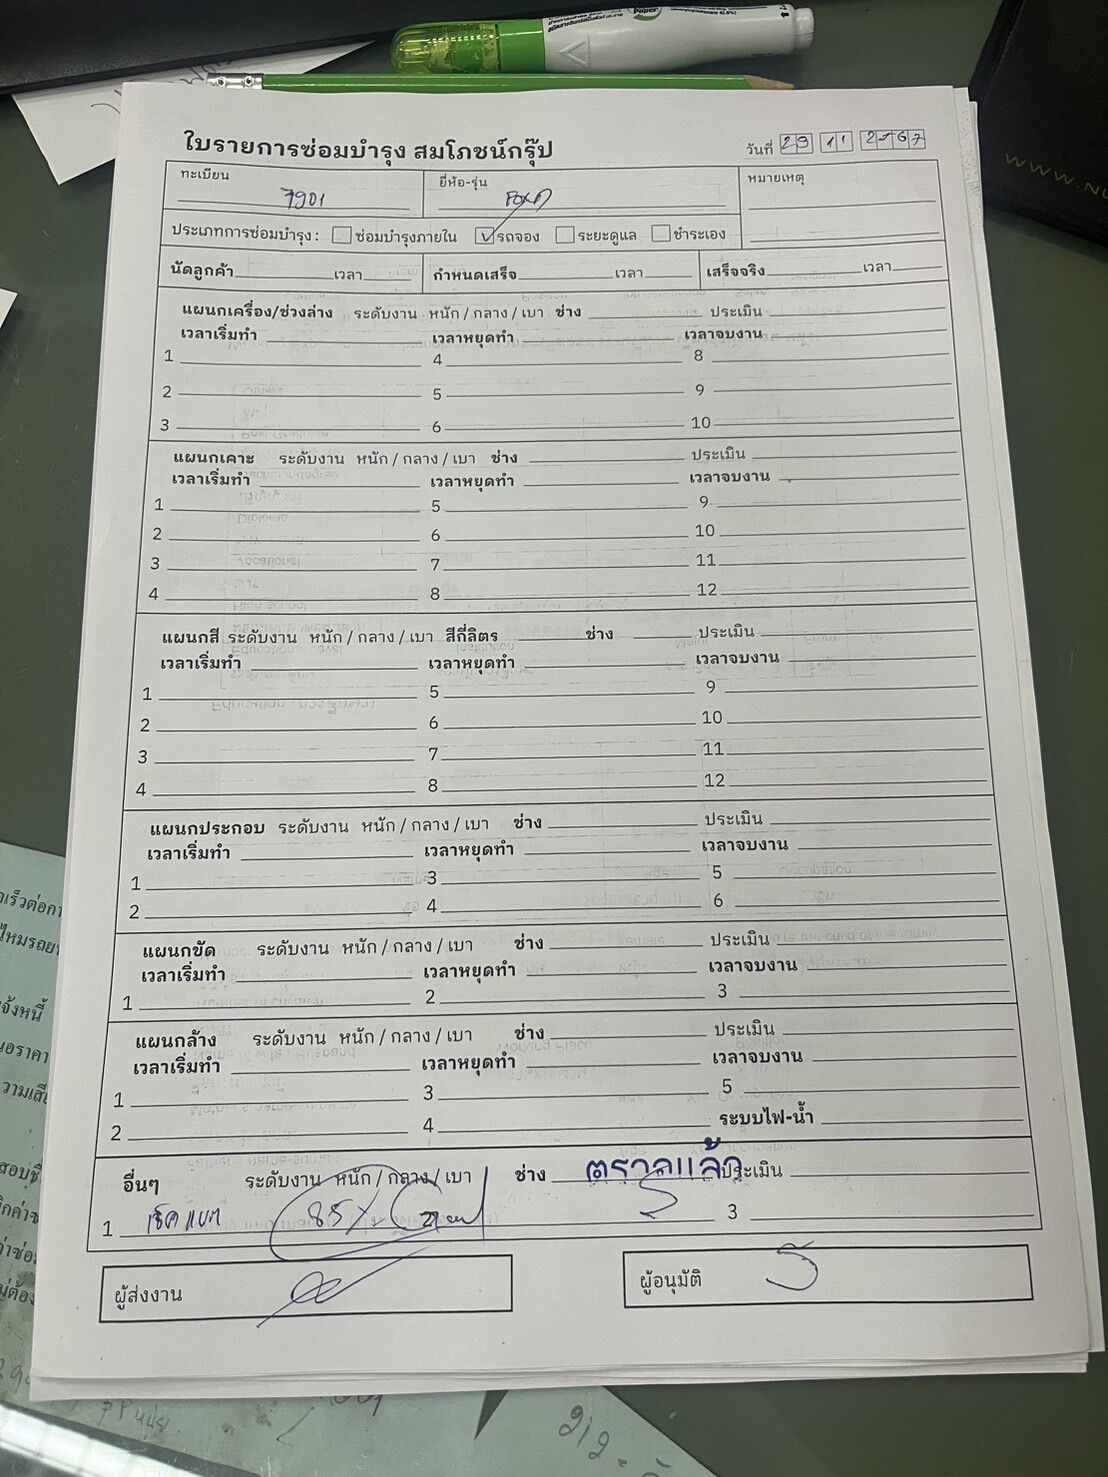 ใบรายการซ่อมบำรุง สมโภชน์กรุ๊ป
วันที่ 29 11 2567
ทะเบียน 7901
ยี่ห้อ-รุ่น
หมายเหตุ
ประเภทการซ่อมบำรุง : ซ่อมบำรุงภายใน ✓ รถจอง ระยะดูแล ชำระเอง
นัดลูกค้า เวลา กำหนดเสร็จ เวลา เสร็จจริง เวลา
แผนกเครื่อง/ช่วงล่าง ระดับงาน หนัก / กลาง / เบา ช่าง ประเมิน
เวลาเริ่มทำ เวลาหยุดทำ เวลาจบงาน
1 4 8
2 5 9
3 6 10
แผนกเคาะ ระดับงาน หนัก / กลาง / เบา ช่าง ประเมิน
เวลาเริ่มทำ เวลาหยุดทำ เวลาจบงาน
1 5 9
2 6 10
3 7 11
4 8 12
แผนกสี ระดับงาน หนัก / กลาง / เบา สีกี่ลิตร ช่าง ประเมิน
เวลาเริ่มทำ เวลาหยุดทำ เวลาจบงาน
1 5 9
2 6 10
3 7 11
4 8 12
แผนกประกอบ ระดับงาน หนัก / กลาง / เบา ช่าง ประเมิน
เวลาเริ่มทำ เวลาหยุดทำ เวลาจบงาน
1 3 5
2 4 6
แผนกขัด ระดับงาน หนัก / กลาง / เบา ช่าง ประเมิน
เวลาเริ่มทำ เวลาหยุดทำ เวลาจบงาน
1 2 3
แผนกล้าง ระดับงาน หนัก / กลาง / เบา ช่าง ประเมิน
เวลาเริ่มทำ เวลาหยุดทำ เวลาจบงาน
1 3 5
2 4 ระบบไฟ-น้ำ
อื่นๆ ระดับงาน หนัก / กลาง / เบา ช่าง ประเมิน
1 เช็คแบต 85% 3
ผู้ส่งงาน
ผู้อนุมัติ